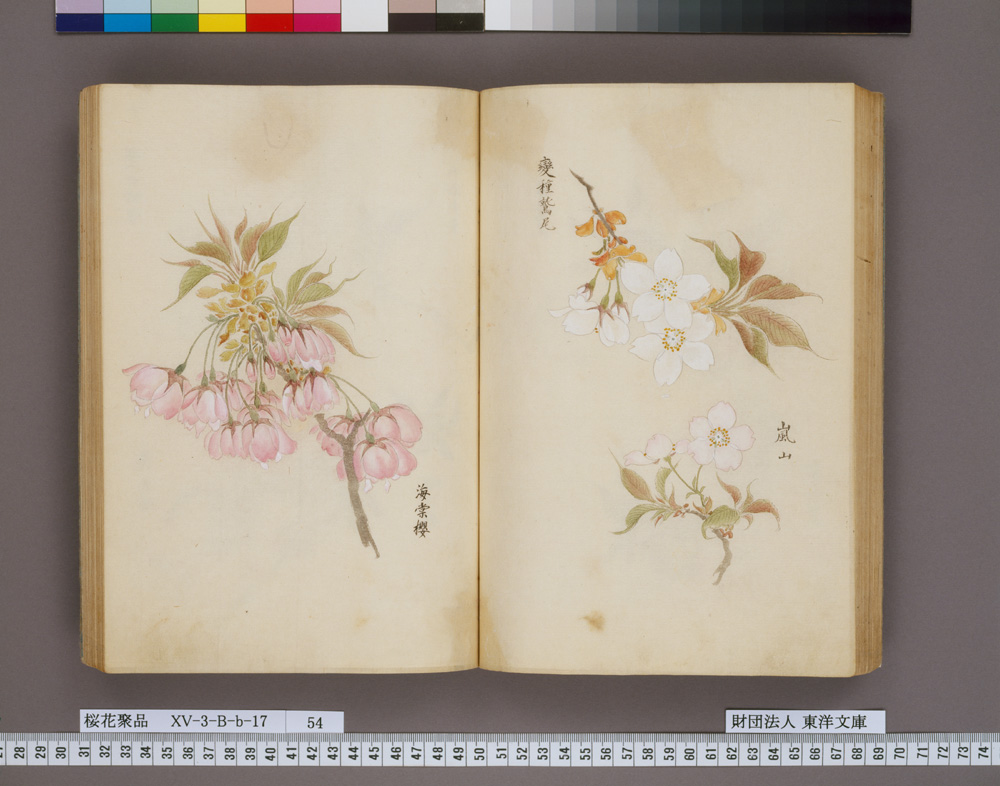 變種鷲尾
嵐山
海棠櫻
桜花聚品 XV-3-B-b-17 54
財団法人 東洋文庫
28 29 30 31 32 33 34 35 36 37 38 39 40 41 42 43 44 45 46 47 48 49 50 51 52 53 54 55 56 57 58 59 60 61 62 63 64 65 66 67 68 69 70 71 72 73 74